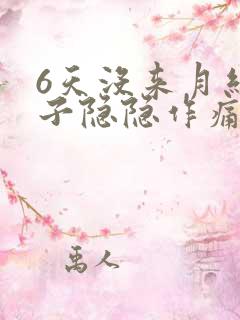 6天没来月
子隐隐作痛
禹人